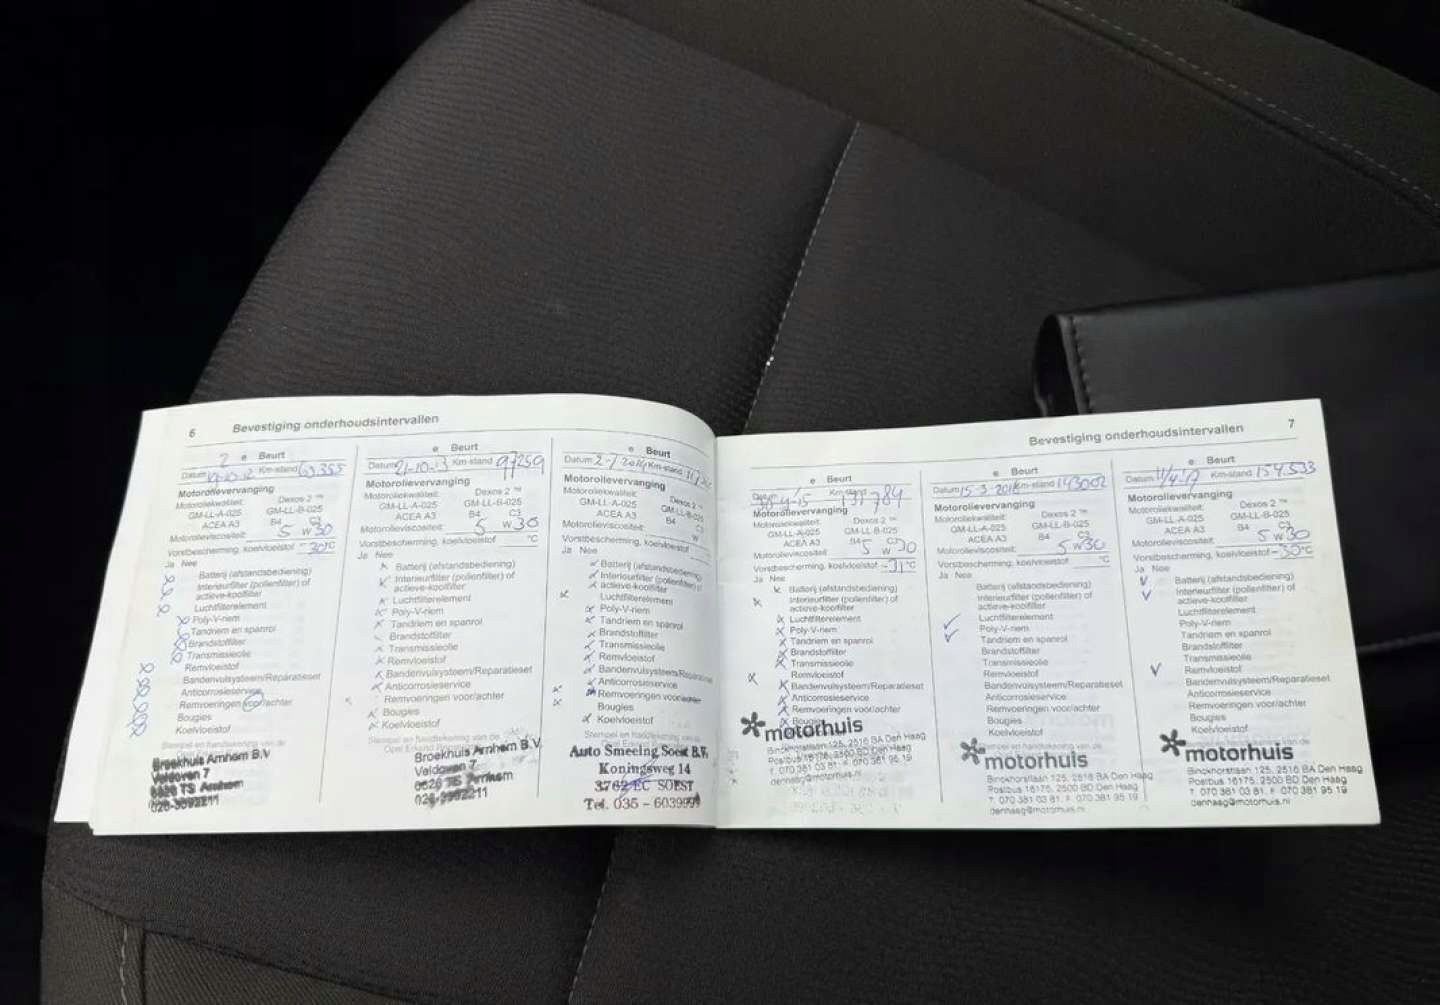 6 Bevestiging onderhoudsintervallen
2 e Beurt
Datum 19-10-12 Km-stand 63.355
Motorolievervanging
Motoroliekwaliteit: Dexos 2 ™
GM-LL-A-025 GM-LL-B-025
ACEA A3 B4 C3
Motorolieviscositeit: 5 W 30
Vorstbescherming, koelvloeistof -30 °C
Ja Nee
Batterij (afstandsbediening)
Interieurfilter (pollenfilter) of
actieve-koolfilter
Luchtfilterelement
Poly-V-riem
Tandriem en spanrol
Brandstoffilter
Transmissieolie
Remvloeistof
Bandenvulsysteem/Reparatieset
Anticorrosieservice
Remvoeringen voor/achter
Bougies
Koelvloeistof
Stempel en handtekening van de
Broekhuis Arnhem B.V
Veldoven 7
6826 TS Arnhem
e Beurt
Datum 21-10-13 Km-stand 97259
Motorolievervanging
Motoroliekwaliteit: Dexos 2 ™
GM-LL-A-025 GM-LL-B-025
ACEA A3 B4 C3
Motorolieviscositeit: 5 W 30
Vorstbescherming, koelvloeistof °C
Ja Nee
Batterij (afstandsbediening)
Interieurfilter (pollenfilter) of
actieve-koolfilter
Luchtfilterelement
Poly-V-riem
Tandriem en spanrol
Brandstoffilter
Transmissieolie
Remvloeistof
Bandenvulsysteem/Reparatieset
Anticorrosieservice
Remvoeringen voor/achter
Bougies
Koelvloeistof
Stempel en handtekening van de
Broekhuis Arnhem B.V.
Veldoven 7
6826 TS Arnhem
e Beurt
Datum 2-7-2014 Km-stand
Motorolievervanging
Motoroliekwaliteit: Dexos 2 ™
GM-LL-A-025 GM-LL-B-025
ACEA A3 B4 C3
Motorolieviscositeit: W
Vorstbescherming, koelvloeistof
Ja Nee
Batterij (afstandsbediening)
Interieurfilter (pollenfilter) of
actieve-koolfilter
Luchtfilterelement
Poly-V-riem
Tandriem en spanrol
Brandstoffilter
Transmissieolie
Remvloeistof
Bandenvulsysteem/Reparatieset
Anticorrosieservice
Remvoeringen voor/achter
Bougies
Koelvloeistof
Auto Smeeing Soest B.V.
Koningsweg 14
3762 EC SOEST
Tel. 035 - 6039999
Bevestiging onderhoudsintervallen 7
e Beurt
Datum Km-stand 131784
Motorolievervanging
Motoroliekwaliteit: Dexos 2 ™
GM-LL-A-025 GM-LL-B-025
ACEA A3 B4 C3
Motorolieviscositeit: 5 W 30
Vorstbescherming, koelvloeistof -31 °C
Ja Nee
Batterij (afstandsbediening)
Interieurfilter (pollenfilter) of
actieve-koolfilter
Luchtfilterelement
Poly-V-riem
Tandriem en spanrol
Brandstoffilter
Transmissieolie
Remvloeistof
Bandenvulsysteem/Reparatieset
Anticorrosieservice
Remvoeringen voor/achter
Bougies
motorhuis
Binckhorstlaan 125, 2516 BA Den Haag
Postbus 16175, 2500 BD Den Haag
T. 070 381 03 81, F. 070 381 95 19
denhaag@motorhuis.nl
e Beurt
Datum 15-3-2016 Km-stand 143002
Motorolievervanging
Motoroliekwaliteit: Dexos 2 ™
GM-LL-A-025 GM-LL-B-025
ACEA A3 B4 C3
Motorolieviscositeit: 5 W 30
Vorstbescherming, koelvloeistof °C
Ja Nee
Batterij (afstandsbediening)
Interieurfilter (pollenfilter) of
actieve-koolfilter
Luchtfilterelement
Poly-V-riem
Tandriem en spanrol
Brandstoffilter
Transmissieolie
Remvloeistof
Bandenvulsysteem/Reparatieset
Anticorrosieservice
Remvoeringen voor/achter
Bougies
Koelvloeistof
motorhuis
Binckhorstlaan 125, 2516 BA Den Haag
Postbus 16175, 2500 BD Den Haag
T. 070 381 03 81, F. 070 381 95 19
denhaag@motorhuis.nl
e Beurt
Datum 11/4-17 Km-stand 154.533
Motorolievervanging
Motoroliekwaliteit: Dexos 2 ™
GM-LL-A-025 GM-LL-B-025
ACEA A3 B4 C3
Motorolieviscositeit: 5 W 30
Vorstbescherming, koelvloeistof -30 °C
Ja Nee
Batterij (afstandsbediening)
Interieurfilter (pollenfilter) of
actieve-koolfilter
Luchtfilterelement
Poly-V-riem
Tandriem en spanrol
Brandstoffilter
Transmissieolie
Remvloeistof
Bandenvulsysteem/Reparatieset
Anticorrosieservice
Remvoeringen voor/achter
Bougies
Koelvloeistof
motorhuis
Binckhorstlaan 125, 2516 BA Den Haag
Postbus 16175, 2500 BD Den Haag
T. 070 381 03 81, F. 070 381 95 19
denhaag@motorhuis.nl